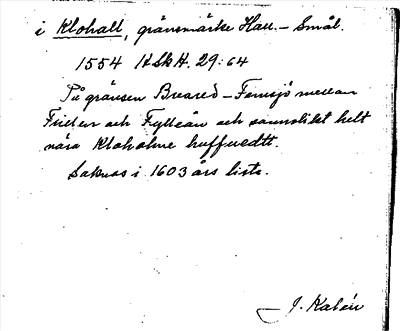 i Klohall, gränsmärke Hall. – Smål.
1554 HSkH. 29:64
På gränsen Breared – Femsjö mellan
och Fylleån och sannolikt helt
nära Kloholme huffuedtt.
Saknas i 1603 års lista.
J. Kalén